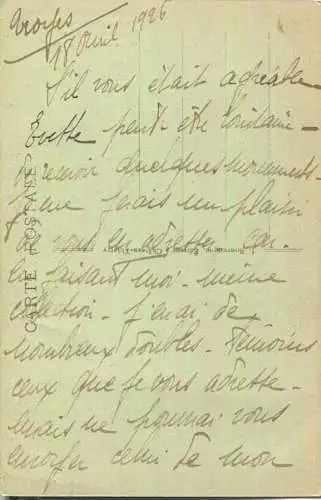 Troyes
18 Avril 1926
S'il vous était agréable
Evette peut-être
recevoir quelques monuments
je me ferais un plaisir
de vous en adresser car
en faisant moi-même
collection - j'en ai de
nombreux doubles - Témoins
ceux que je vous adresse -
mais ne pourrai vous
envoyer celui de mon
CARTE POSTALE